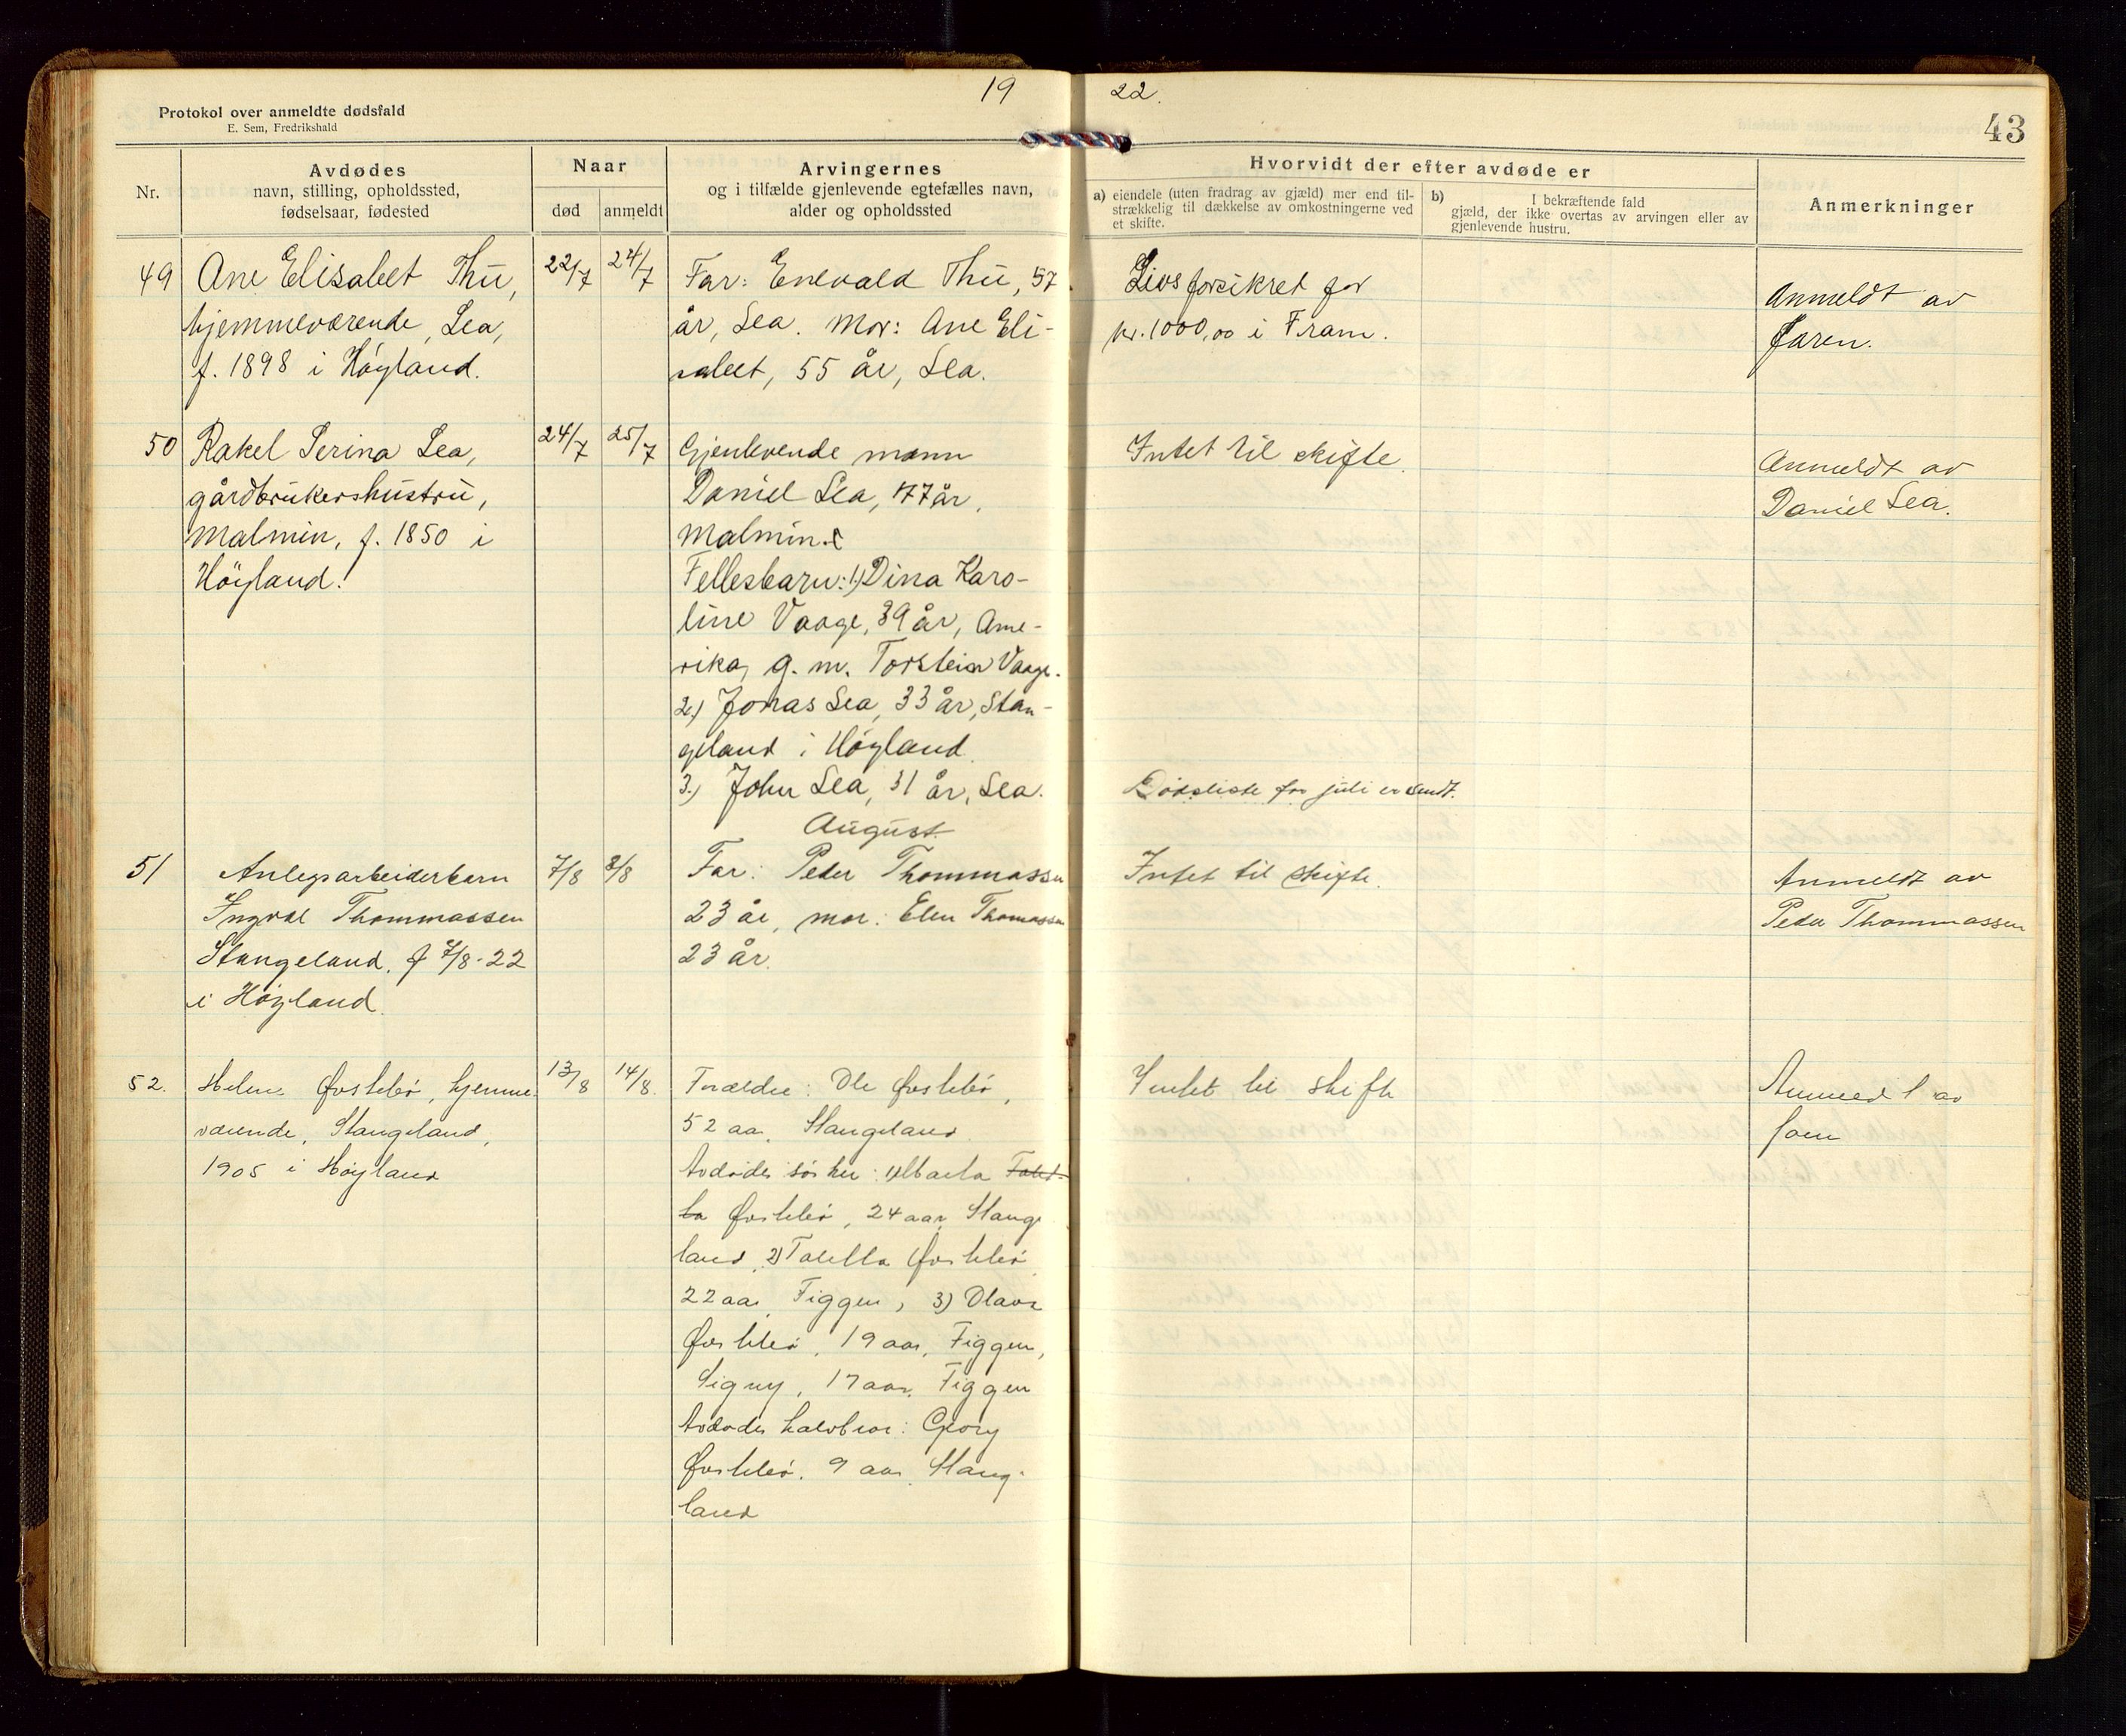 19 22.
Protokol over anmeldte dødsfald
E. Sem, Fredrikshald
43
Nr.
Avdødes
navn, stilling, opholdssted,
fødselsaar, fødested
Naar
død
anmeldt
Arvingernes
og i tilfælde gjenlevende egtefælles navn,
alder og opholdssted
Hvorvidt der efter avdøde er
a) eiendele (uten fradrag av gjæld) mer end til-
strækkelig til dækkelse av omkostningerne ved
et skifte.
b) I bekræftende fald
gjæld, der ikke overtas av arvingen eller av
gjenlevende hustru.
Anmerkninger
49
Ane Elisabet Thu,
hjemmeværende, Lea,
f. 1898 i Høyland.
22/7
24/7
Far: Enevald Thu, 57
år, Lea. Mor: Ane Eli-
sabet, 55 år, Lea.
Livsforsikret for
kr. 1000,00 i Fram.
Anmeldt av
faren.
50
Rakel Serina Lea,
gårdbrukershustru,
Malmin, f. 1850 i
Høyland.
24/7
25/7
Gjenlevende mann
Daniel Lea, 77 år,
Malmin.
Fellesbarn: 1) Dina Karo-
line Vaage, 39 år, Ame-
rika, g. m. Torstein Vaage.
2.) Jonas Lea, 33 år, Stan-
geland i Høyland.
3.) John Lea, 31 år, Lea.
Intet til skifte.
Anmeldt av
Daniel Lea.
Dødsliste for juli er sendt.
August
51
Anlegsarbeiderbarn
Ingval Thommassen
Stangeland, f 7/8-22
i Høyland.
7/8
8/8
Far: Peder Thommassen
23 år, mor: Elen Thomassen
23 år.
Intet til skifte.
Anmeldt av
Peder Thommassen
52.
Helene Østebø, hjemme-
værende, Stangeland,
1905 i Høyland
13/8
14/8.
Forældre: Ole Østebø,
52 aar, Stangeland
Avdødes søsken: 1) Marta Tabit-
ta Østebø, 24 aar, Stange
land, 2) Tabitta Østebø
22 aar, Figgen, 3) Olava
Østebø, 19 aar, Figgen,
Signy, 17 aar, Figgen
Avdødes halvbror: Georg
Østebø, 9 aar, Stange-
land
Intet til skifte
Anmeldt av
faren